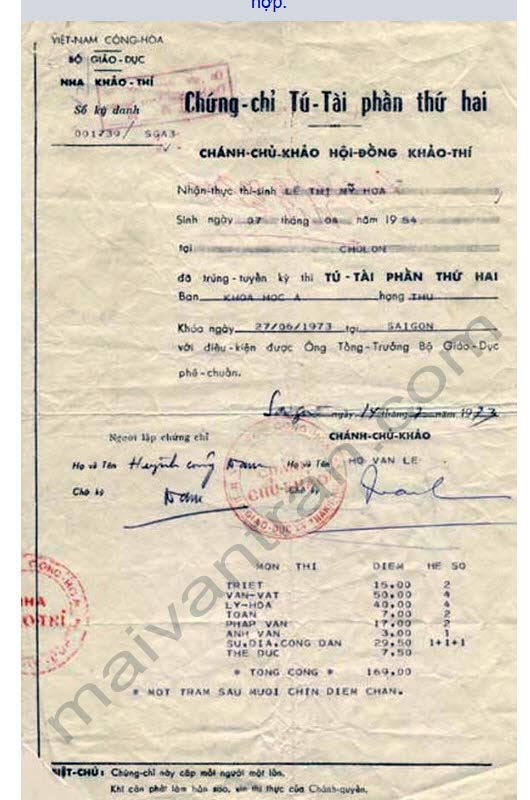 hợp.
VIỆT-NAM CỘNG-HÒA
BỘ GIÁO-DỤC
NHA KHẢO-THÍ
Số ký danh
001739/ SGA3
Chứng-chỉ Tú-Tài phần thứ hai
CHÁNH-CHỦ-KHẢO HỘI-ĐỒNG KHẢO-THÍ
Nhận-thực thí-sinh LÊ THỊ MỸ HOA
Sinh ngày 07 tháng 04 năm 1954
tại CHOLON
đã trúng-tuyển kỳ thi TÚ-TÀI PHẦN THỨ HAI
Ban KHOA HOC A hạng THU
Khóa ngày 27/06/1973 tại SAIGON
với điều-kiện được Ông Tổng-Trưởng Bộ Giáo-Dục
phê-chuẩn.
Saigon ngày 14 tháng 7 năm 1973
Người lập chứng chỉ
CHÁNH-CHỦ-KHẢO
Họ và Tên Huỳnh công Nam Họ và Tên HO VAN LE
Chữ ký Nam Chữ ký
CHÁNH
CHỦ-KHẢO
MON THI DIEM HE SO
TRIET 15.00 2
VAN-VAT 50.00 4
LY-HOA 40.00 4
TOAN 7.00 2
PHAP VAN 17.00 2
ANH VAN 3.00 1
SU.DIA.CONG DAN 29.50 1+1+1
THE DUC 7.50
* TONG CONG * 169.00
* MOT TRAM SAU MUOI CHIN DIEM CHAN.
maivantran.com
VIỆT-CHÚ: Chứng-chỉ này cấp mỗi người một lần.
Khi cần phát làm bản sao, xin thị thực của Chánh-quyền.